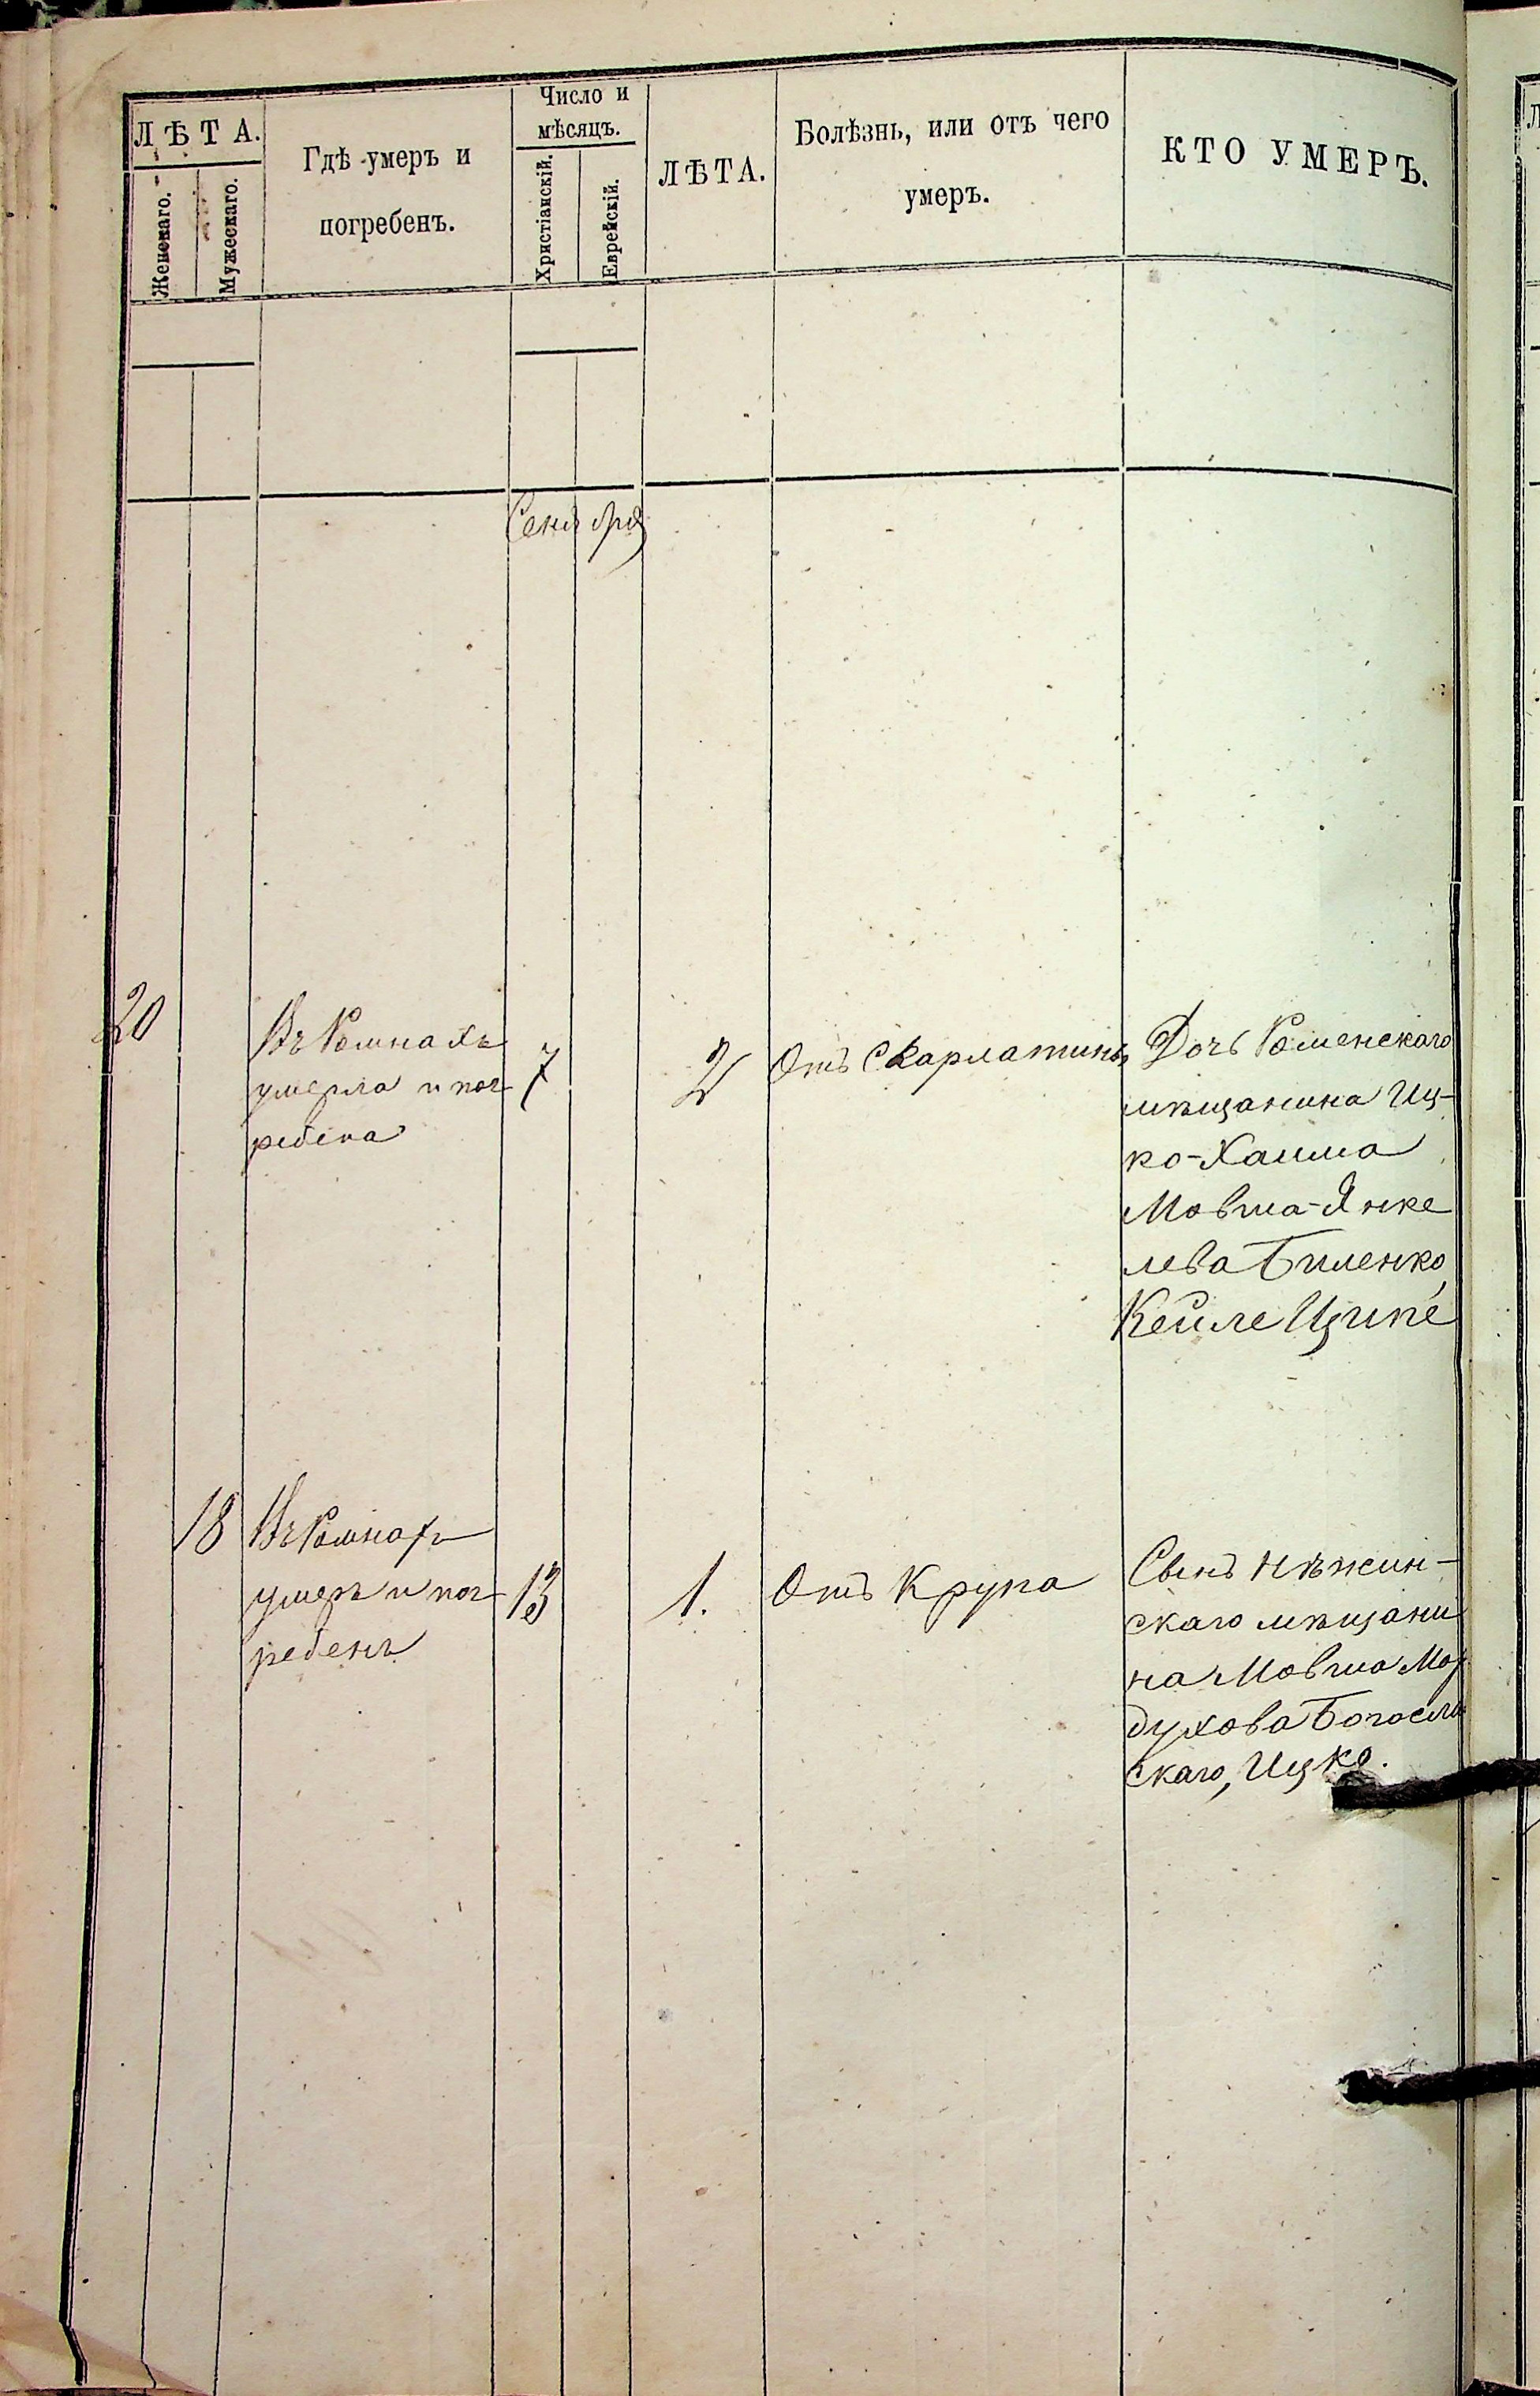 ЛѢТА.
Женскаго.
Мужескаго.
Гдѣ умеръ и
погребенъ.
Число и
мѣсяцъ.
Христіанскій.
Еврейскій.
ЛѢТА.
Болѣзнь, или отъ чего
умеръ.
КТО УМЕРЪ.
Сентября
20
Въ Ромнахъ
умерла и пог-
ребена
7
2
Отъ Скарлатины
Дочь Роменскаго
мѣщанина Иц-
ко-Хаима
Мовша-Янке
лева Биленко,
Кейле Ципе
18
Въ Ромнахъ
умеръ и пог-
ребенъ
13
1.
Отъ Крупа
Сынъ Нѣжин-
скаго мѣщани
на Мовша Мор
духова
скаго, Ицко.